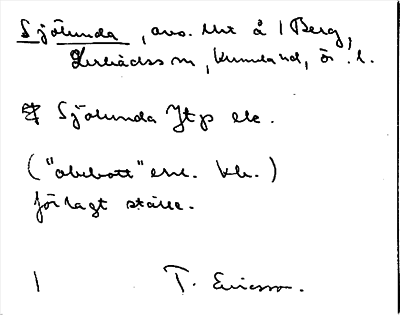 Sjölunda, avs. lht å 1 Berg,
Lerbäcks sn, Kumla hd, ör. l.
Sjölunda Jtp ek.
("obebott" enl. kh.)
förlagt ställe.
1 T. Ericsson.